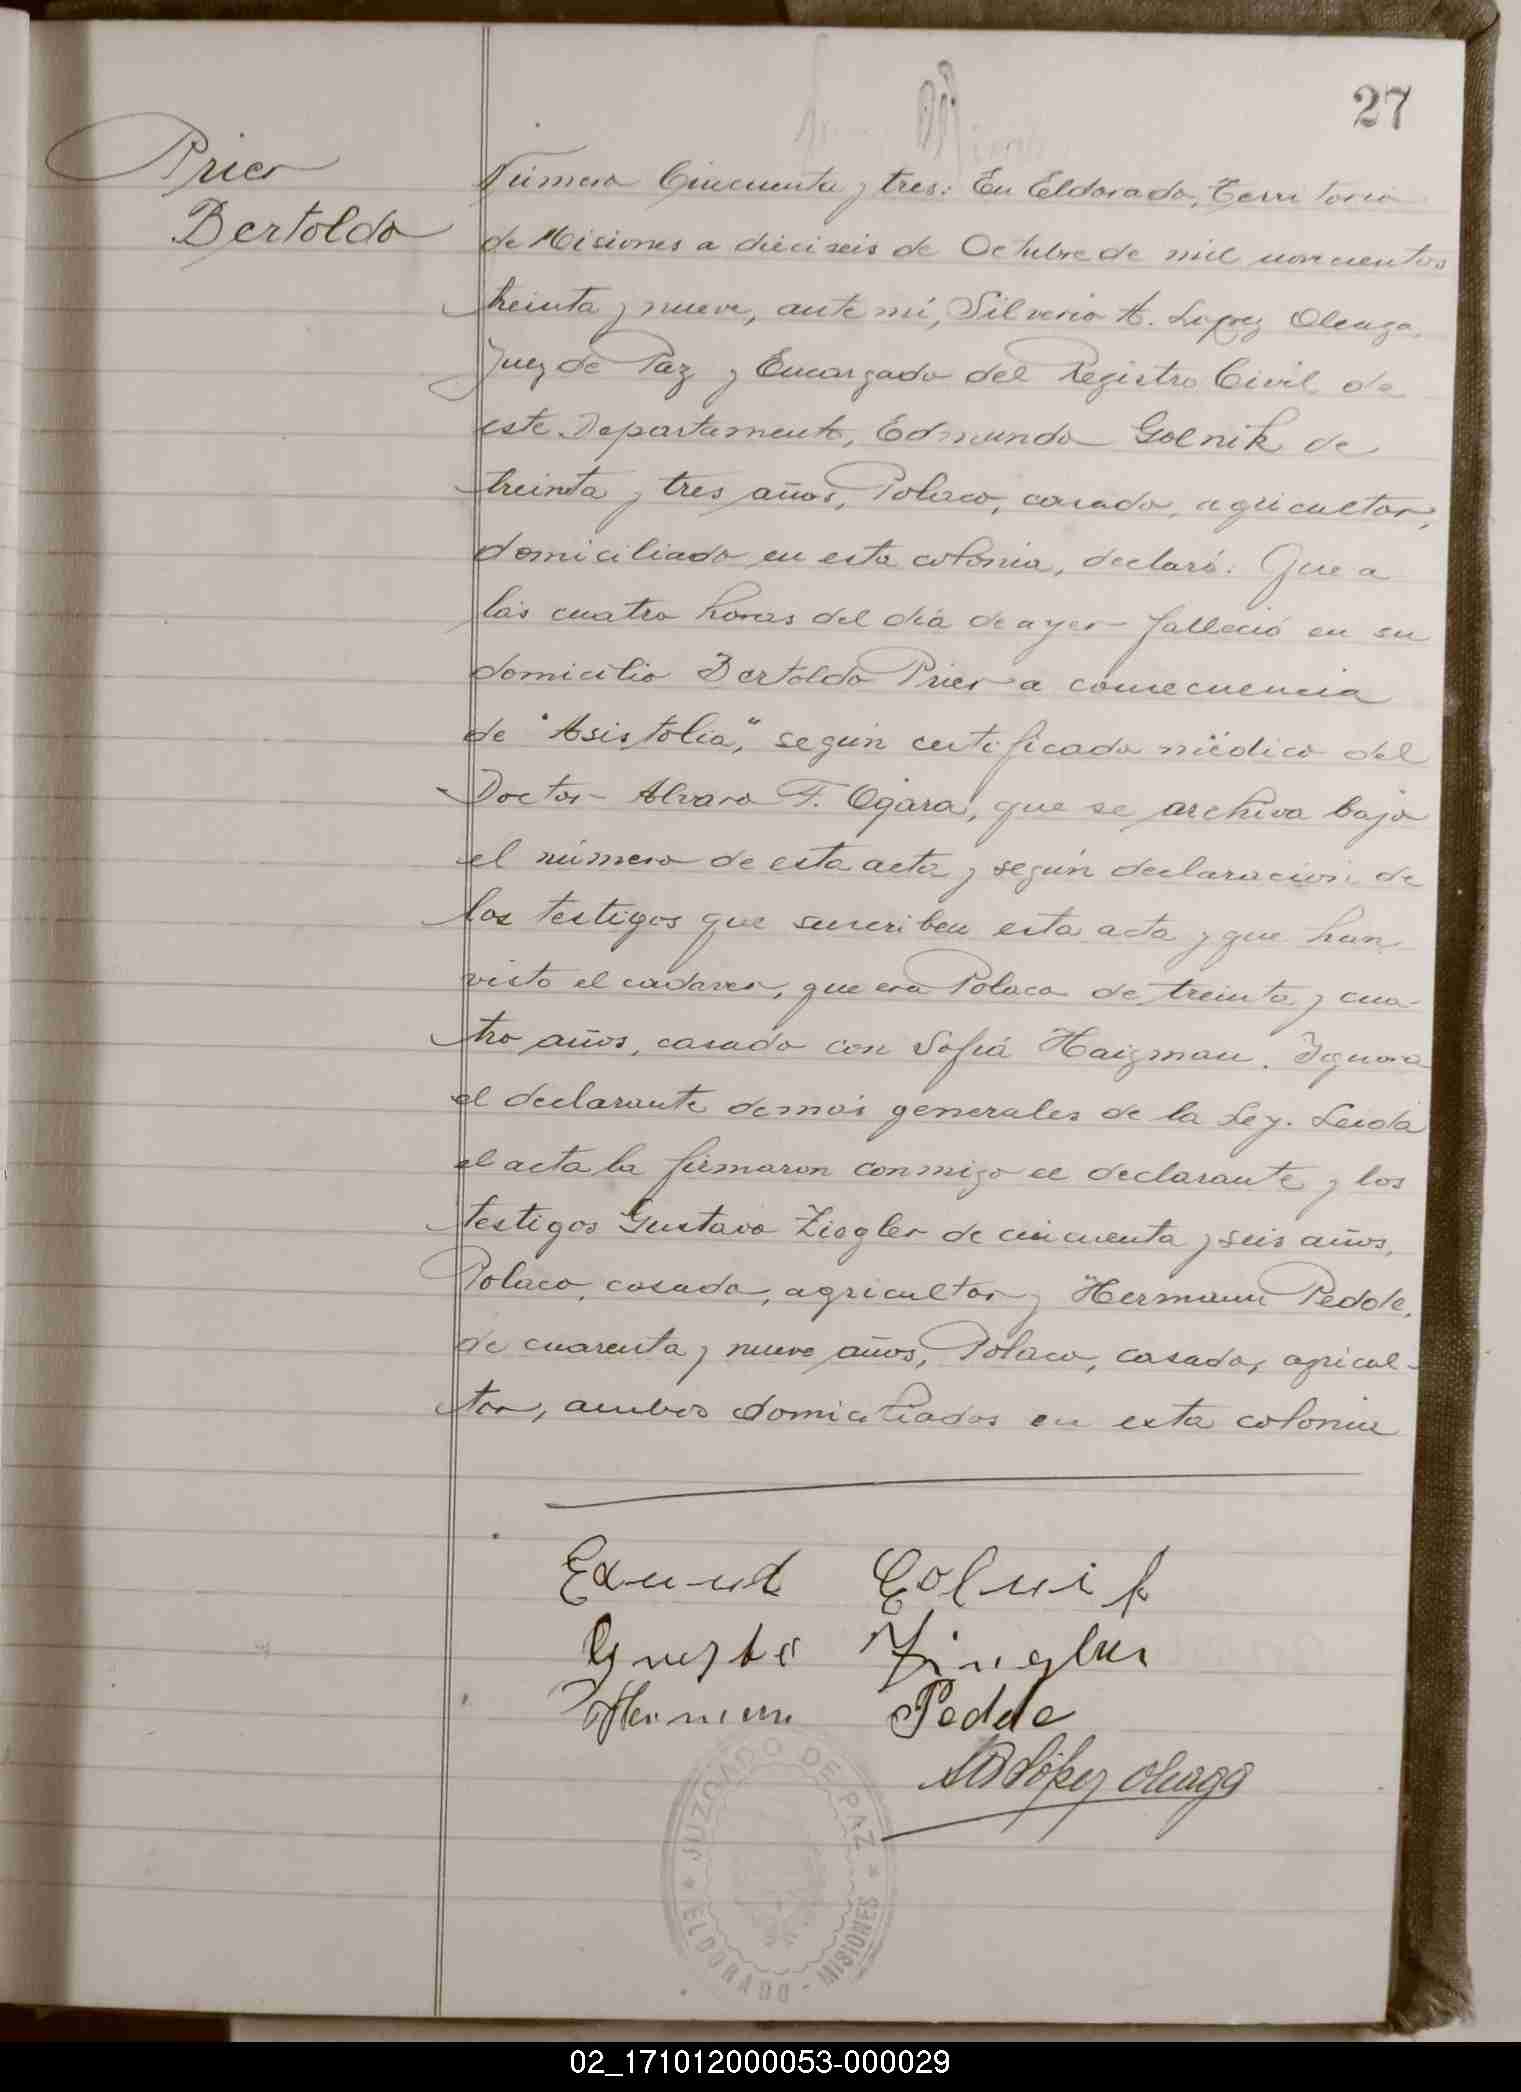 27
Prier
Bertoldo
Número Cincuenta y tres: En Eldorado, Territorio
de Misiones a dieciseis de Octubre de mil novecientos
treinta y nueve, ante mi, Silverio A. Lopez Oleaga,
Juez de Paz y Encargado del Registro Civil de
este Departamento, Edmundo Golnik de
treinta y tres años, Polaco, casado, agricultor,
domiciliado en esta colonia, declaró: Que a
las cuatro horas del día de ayer falleció en su
domicilio Bertoldo Prier a consecuencia
de "Asistolia", según certificado médico del
Doctor Alvaro F. Ogara, que se archiva bajo
el número de esta acta y según declaración de
los testigos que suscriben esta acta y que han
visto el cadaver, que era Polaco de treinta y cua-
tro años, casado con Sofiá Haizman. Ignora
el declarante demás generales de la Ley. Leída
el acta la firmaron conmigo el declarante y los
testigos Gustavo Ziegler de cincuenta y seis años,
Polaco, casado, agricultor y Hermann Pedde,
de cuarenta y nueve años, Polaco, casado, agricul-
tor, ambos domiciliados en esta colonia
Edmund Golnik
Pedde
López Oleaga
JUZGADO DE PAZ
ELDORADO - MISIONES
02_171012000053-000029